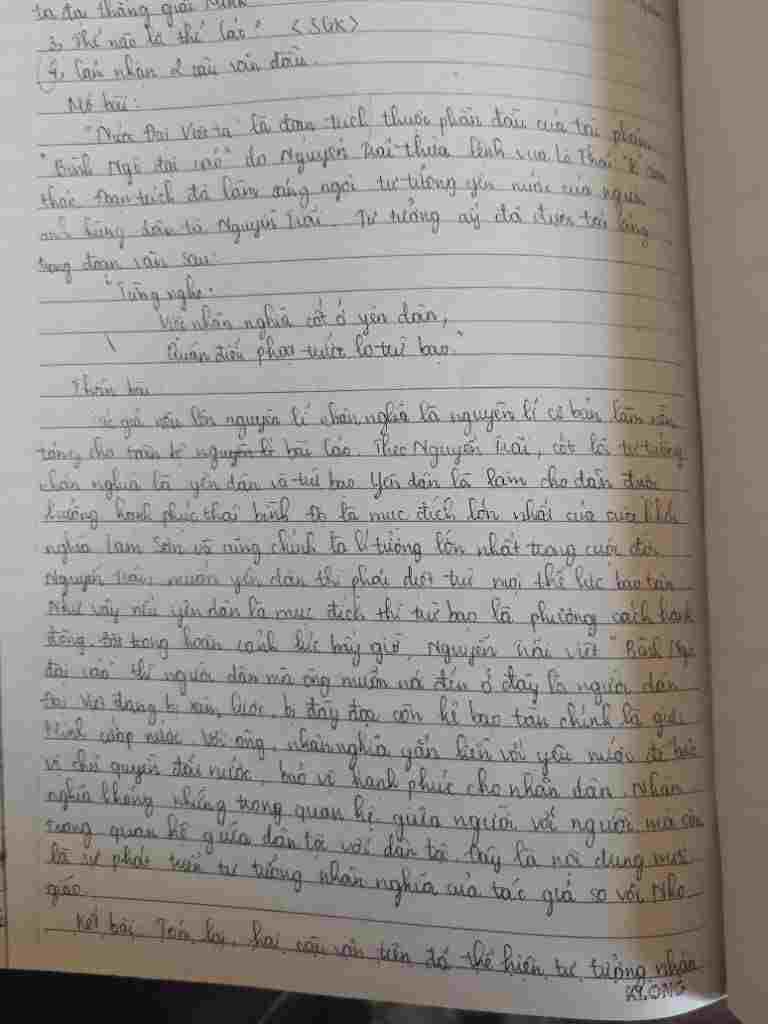 ta đại thắng giặc Minh
3, Thế nào là thể cáo? <SGK>
4, Cảm nhận 2 câu văn đầu.
Mở bài:
"Nước Đại Việt ta" là đoạn trích thuộc phần đầu của tác phẩm
"Bình Ngô đại cáo" do Nguyễn Trãi thừa lệnh vua Lê Thái
thảo. Đoạn trích đã làm sáng ngời tư tưởng yên nước của người
anh hùng dân tộ Nguyễn Trãi. Tư tưởng ấy đã được
trong đoạn văn sau:
"Từng nghe:
Việc nhân nghĩa cốt ở yên dân,
Quân điếu phạt trước lo trừ bạo."
Thân bài
Tác giả nêu lên nguyên lí nhân nghĩa là nguyên lí cơ bản làm nền
tảng cho triển kể nguyên lí bài cáo. Theo Nguyễn Trãi, cốt lõi tư tưởng
nhân nghĩa là yên dân và trừ bạo. Yên dân là làm cho dân được
hưởng hạnh phúc thái bình. Đó là mục đích lớn nhất của cuộc khởi
nghĩa Lam Sơn và cũng chính là lí tưởng lớn nhất trong cuộc đời
Nguyễn Trãi. muốn yên dân thì phải diệt trừ mọi thế lực bạo tàn
Như vậy nếu yên dân là mục đích thì trừ bạo là phương cách hành
động. Đặt trong hoàn cảnh lúc bấy giờ, Nguyễn Trãi viết "Bình Ngô
đại cáo" thì người dân mà ông muốn nói đến ở đây là người dân
Đại Việt đang bị xâm lược, bị đày đọa còn kẻ bạo tàn chính là giặc
Minh cướp nước. Với ông, nhân nghĩa gắn liền với yêu nước để bảo
vệ chủ quyền đất nước, bảo vệ hạnh phúc cho nhân dân. Nhân
nghĩa không những trong quan hệ giữa người với người mà còn
trong quan hệ giữa dân tộ với dân tộ. Đây là nội dung mới
là sự phát triển tư tưởng nhân nghĩa của tác giả so với Nho
giáo.
Kết bài. Tóm lại, hai câu văn trên đã thể hiện tư tưởng nhân
KLONG